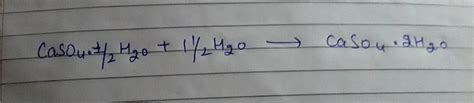 CaSO4·1/2 H2O + 1 1/2 H2O → CaSO4·2H2O